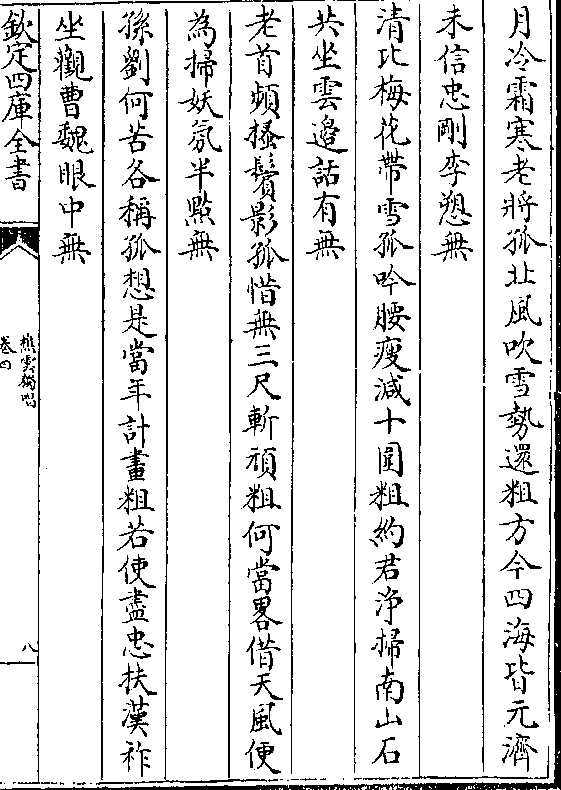 月冷霜寒老將孤北風吹雪勢還粗方今四海皆元濟
未信忠剛李愬無
清比梅花帶雪孤吟腰瘦減十圍粗約君浄掃南山石
共坐雲邉話有無
老首頻搔鬢影孤惜無三尺斬頑粗何當畧借天風便
為掃妖氛半點無
孫劉何苦各稱孤想是當年計畫粗若使盡忠扶漢祚
坐觀曹魏眼中無
欽定四庫全書
樵雲獨唱
卷四
八